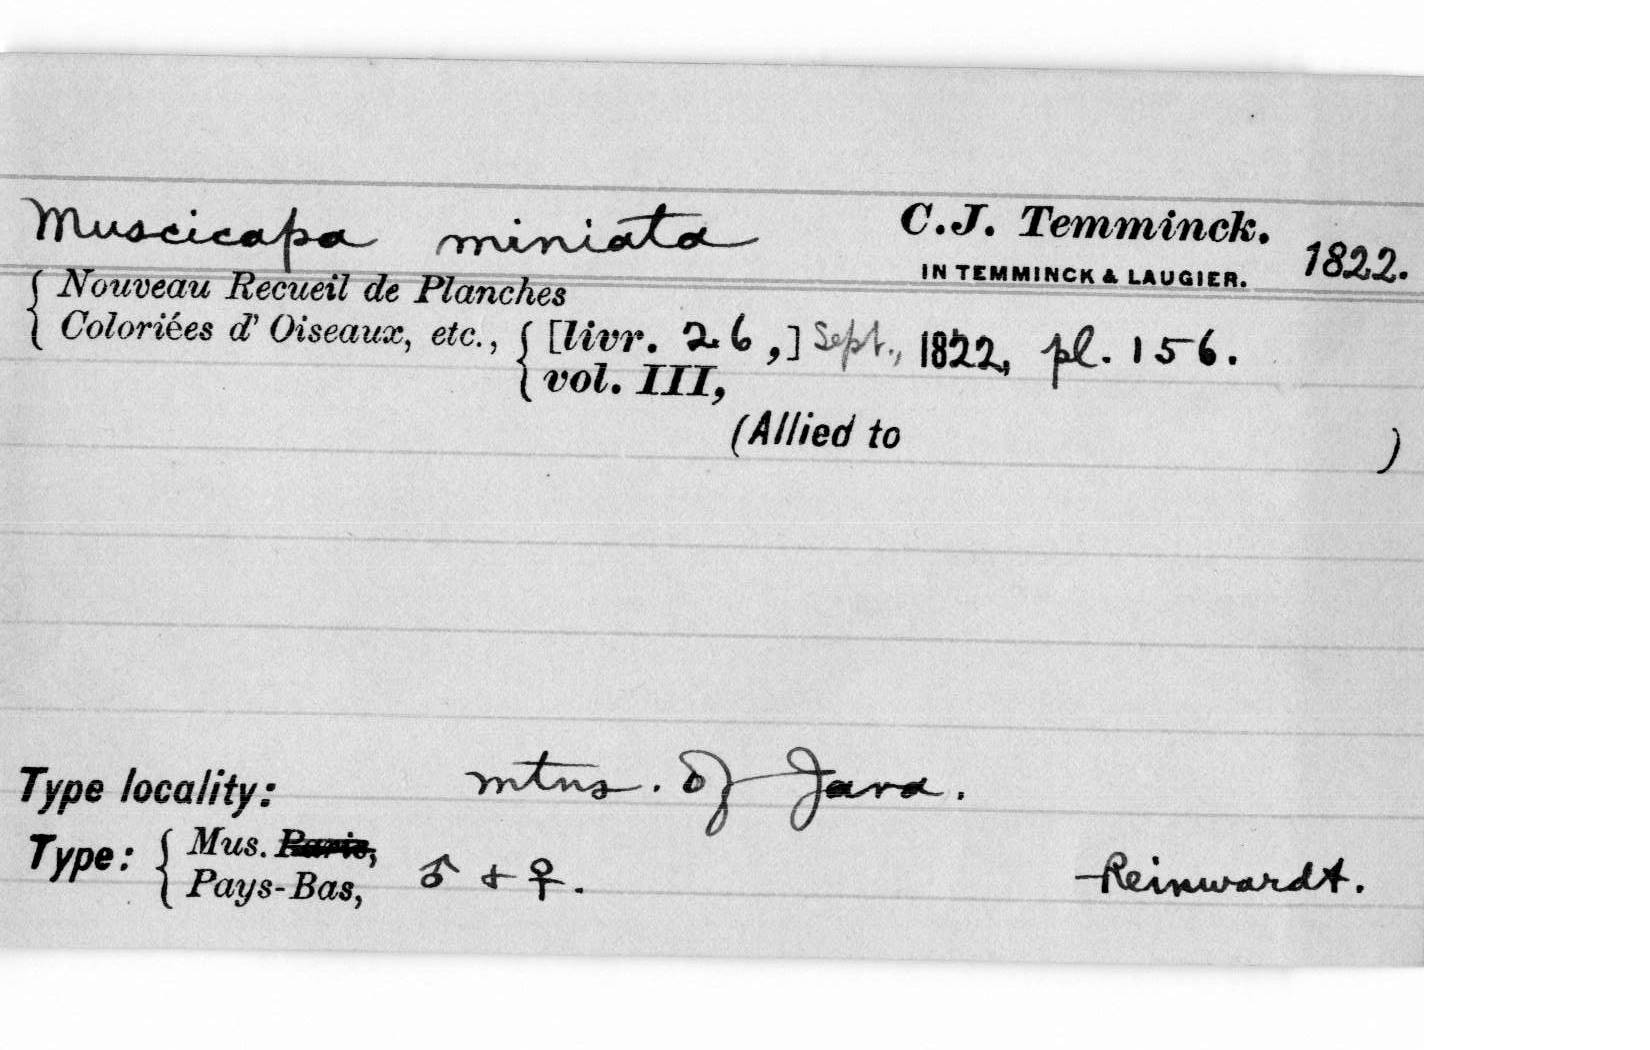 Muscicapa miniata C.J. Temminck. 1822.
IN TEMMINCK & LAUGIER.
{ Nouveau Recueil de Planches
Coloriées d' Oiseaux, etc., { [livr. 26,] Sept., 1822, pl. 156.
vol. III,
(Allied to )
Type locality: mtns. of Java.
Type: { Mus. Paris,
Pays-Bas, ♂ + ♀. Reinwardt.